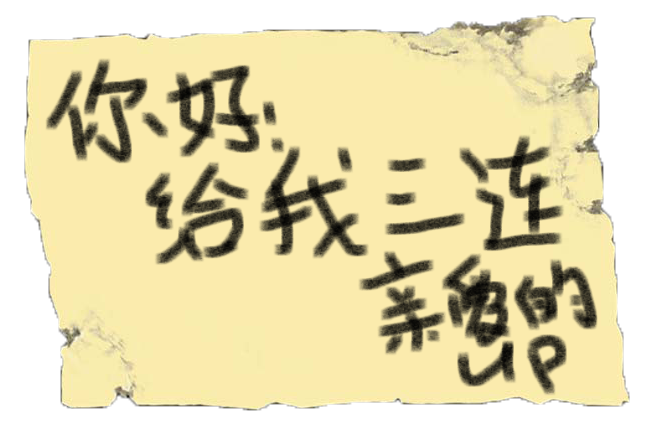 你好!
给我三连
亲爱的
UP